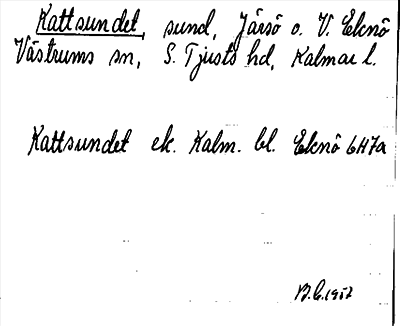 Kattsundet, sund, Järsö o. V. Eknö
Västrums sn, S. Tjusts hd, Kalmar l.
Kattsundet ek. Kalm. bl. Eknö 6H7a
B.C. 1952